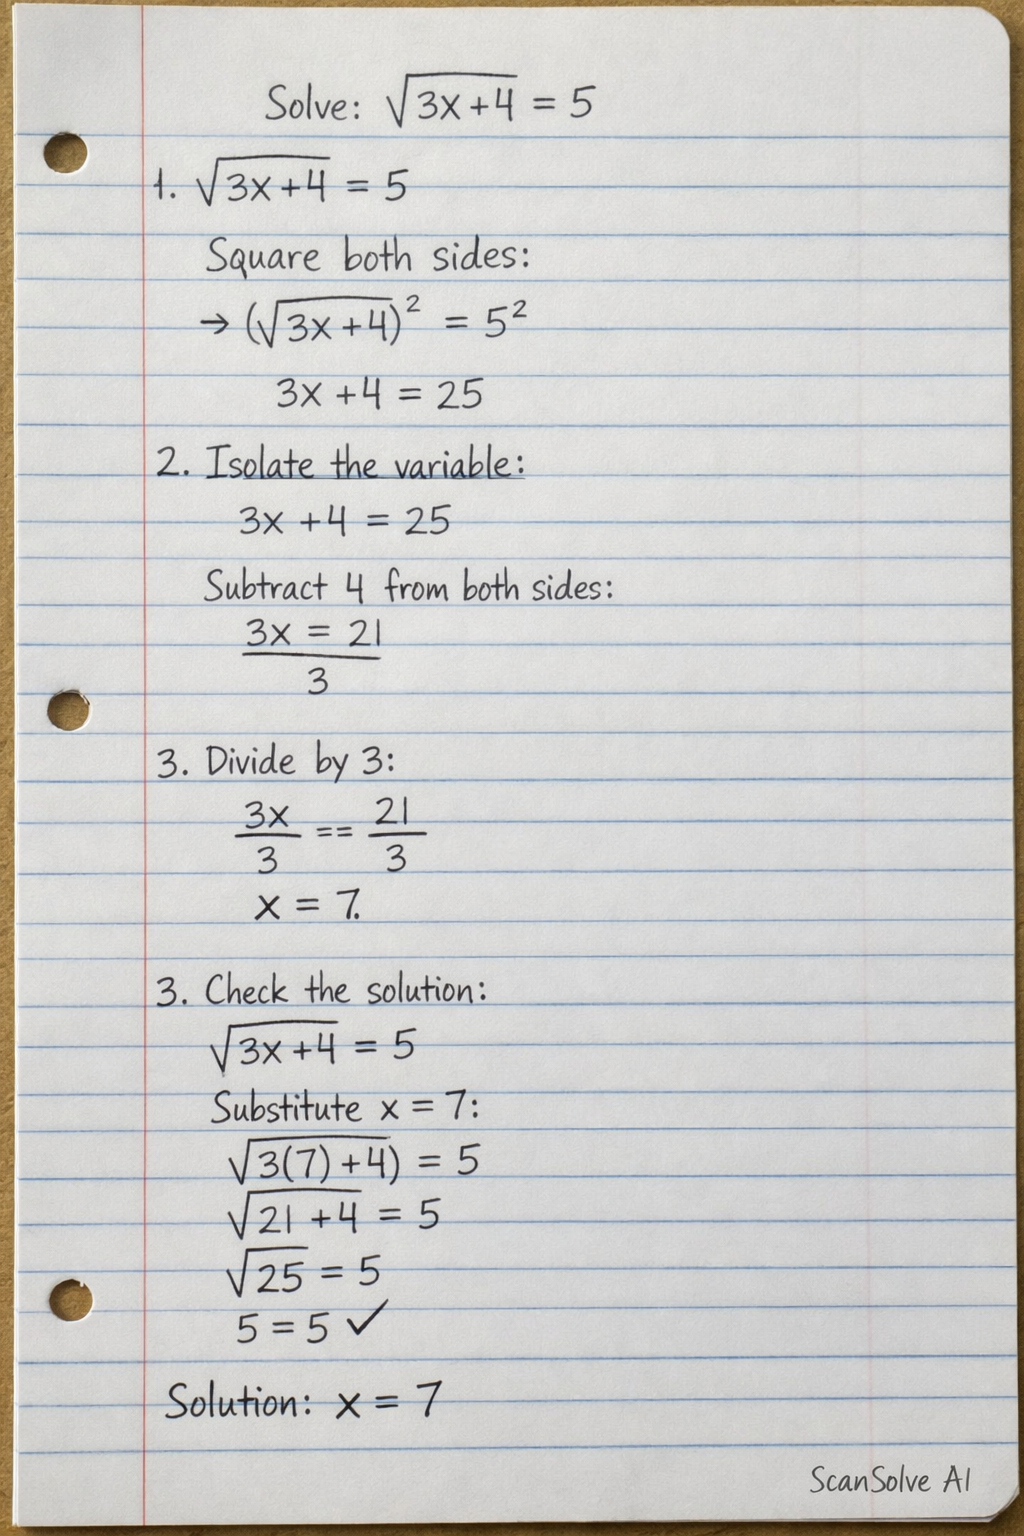 Solve: √(3x+4) = 5
1. √(3x+4) = 5
Square both sides:
→ (√(3x+4))² = 5²
3x +4 = 25
2. Isolate the variable:
3x +4 = 25
Subtract 4 from both sides:
3x = 21
3
3. Divide by 3:
3x/3 == 21/3
x = 7.
3. Check the solution:
√(3x+4) = 5
Substitute x = 7:
√3(7)+4) = 5
√(21 +4) = 5
√25 = 5
5 = 5 ✓
Solution: x = 7
ScanSolve AI